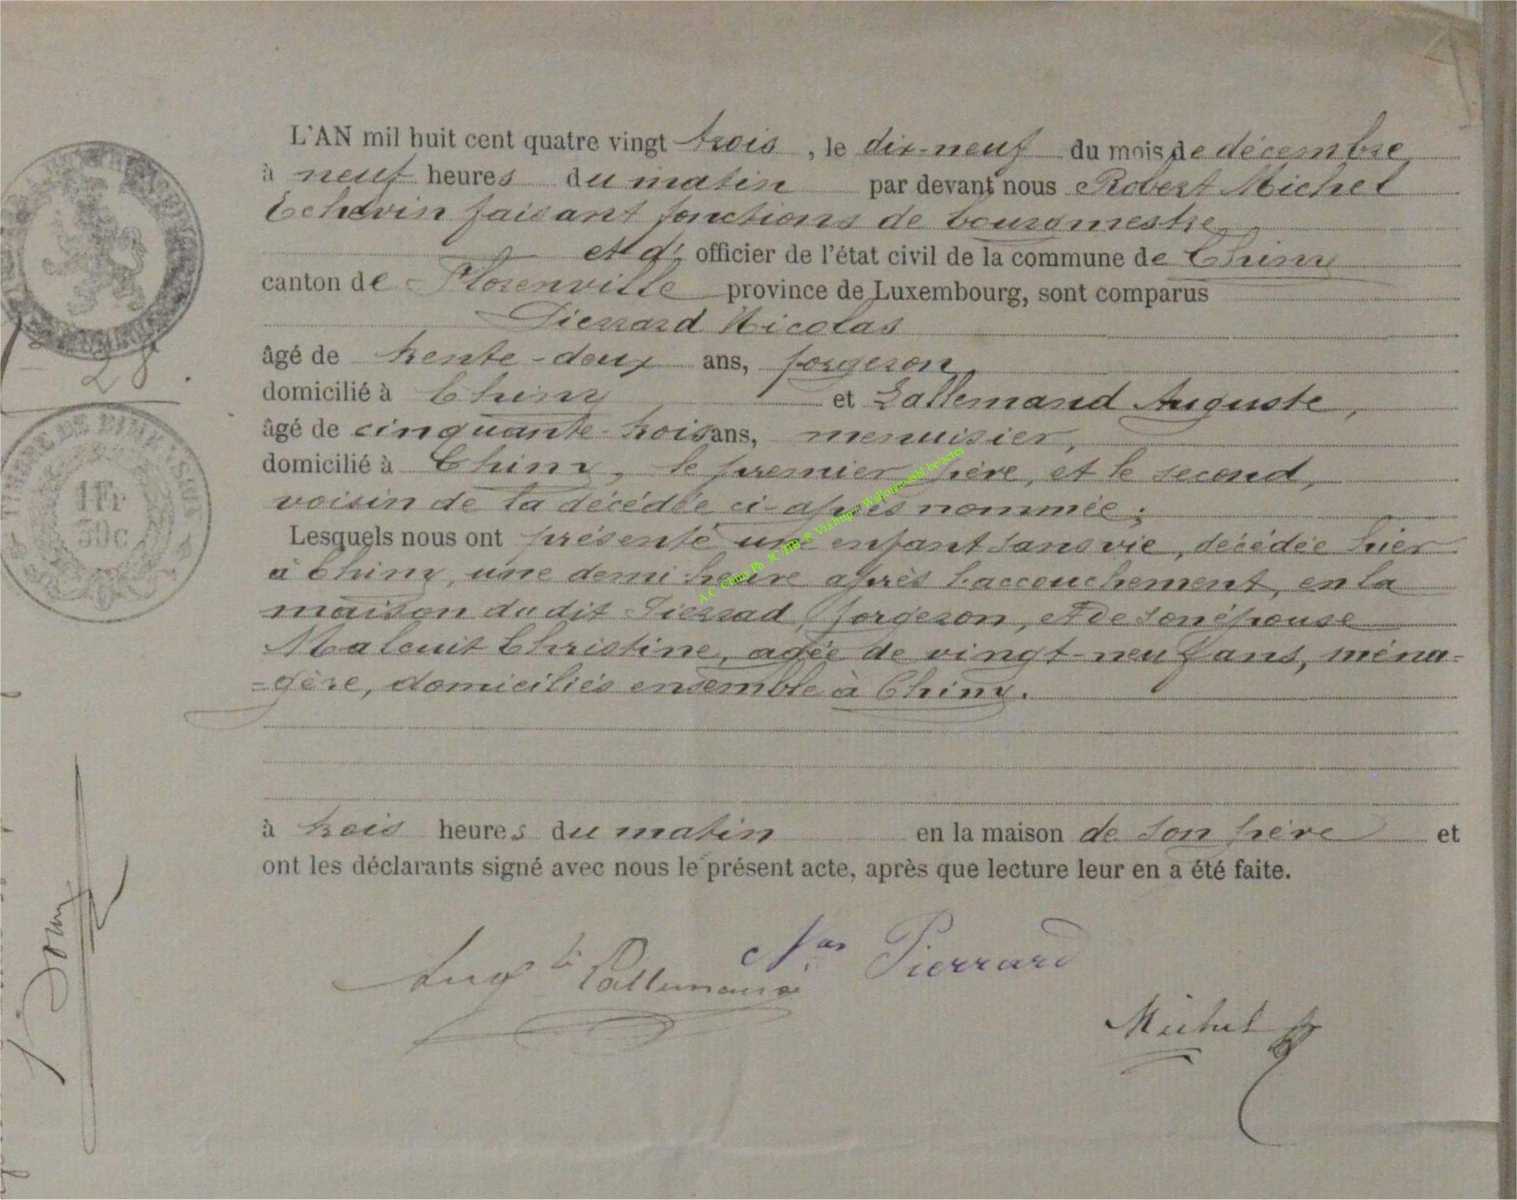 L'AN mil huit cent quatre vingt trois, le dix-neuf du mois de décembre,
à neuf heures du matin par devant nous Robert Michel
Echevin faisant fonctions de bourgmestre
et d' officier de l'état civil de la commune de Chiny
canton de Florenville province de Luxembourg, sont comparus
Pierrard Nicolas
âgé de trente-deux ans, forgeron,
domicilié à Chiny et Lallemand Auguste,
âgé de cinquante-trois ans, menuisier,
domicilié à Chiny, le premier père, et le second,
voisin de la décédée ci-après nommée;
Lesquels nous ont présenté une enfant sans vie, décédée hier
à Chiny, une demi heure après l'accouchement, en la
maison du dit Pierrad, forgeron, et de son épouse
Christine, agée de vingt-neuf ans, ména-
=gère, domiciliés ensemble à Chiny.
à trois heures du matin en la maison de son père et
ont les déclarants signé avec nous le présent acte, après que lecture leur en a été faite.
Nas Pierrard
Augte Lallemand
Michel R
28.
TIMBRE DE DIMENSION
1 Fr
30c